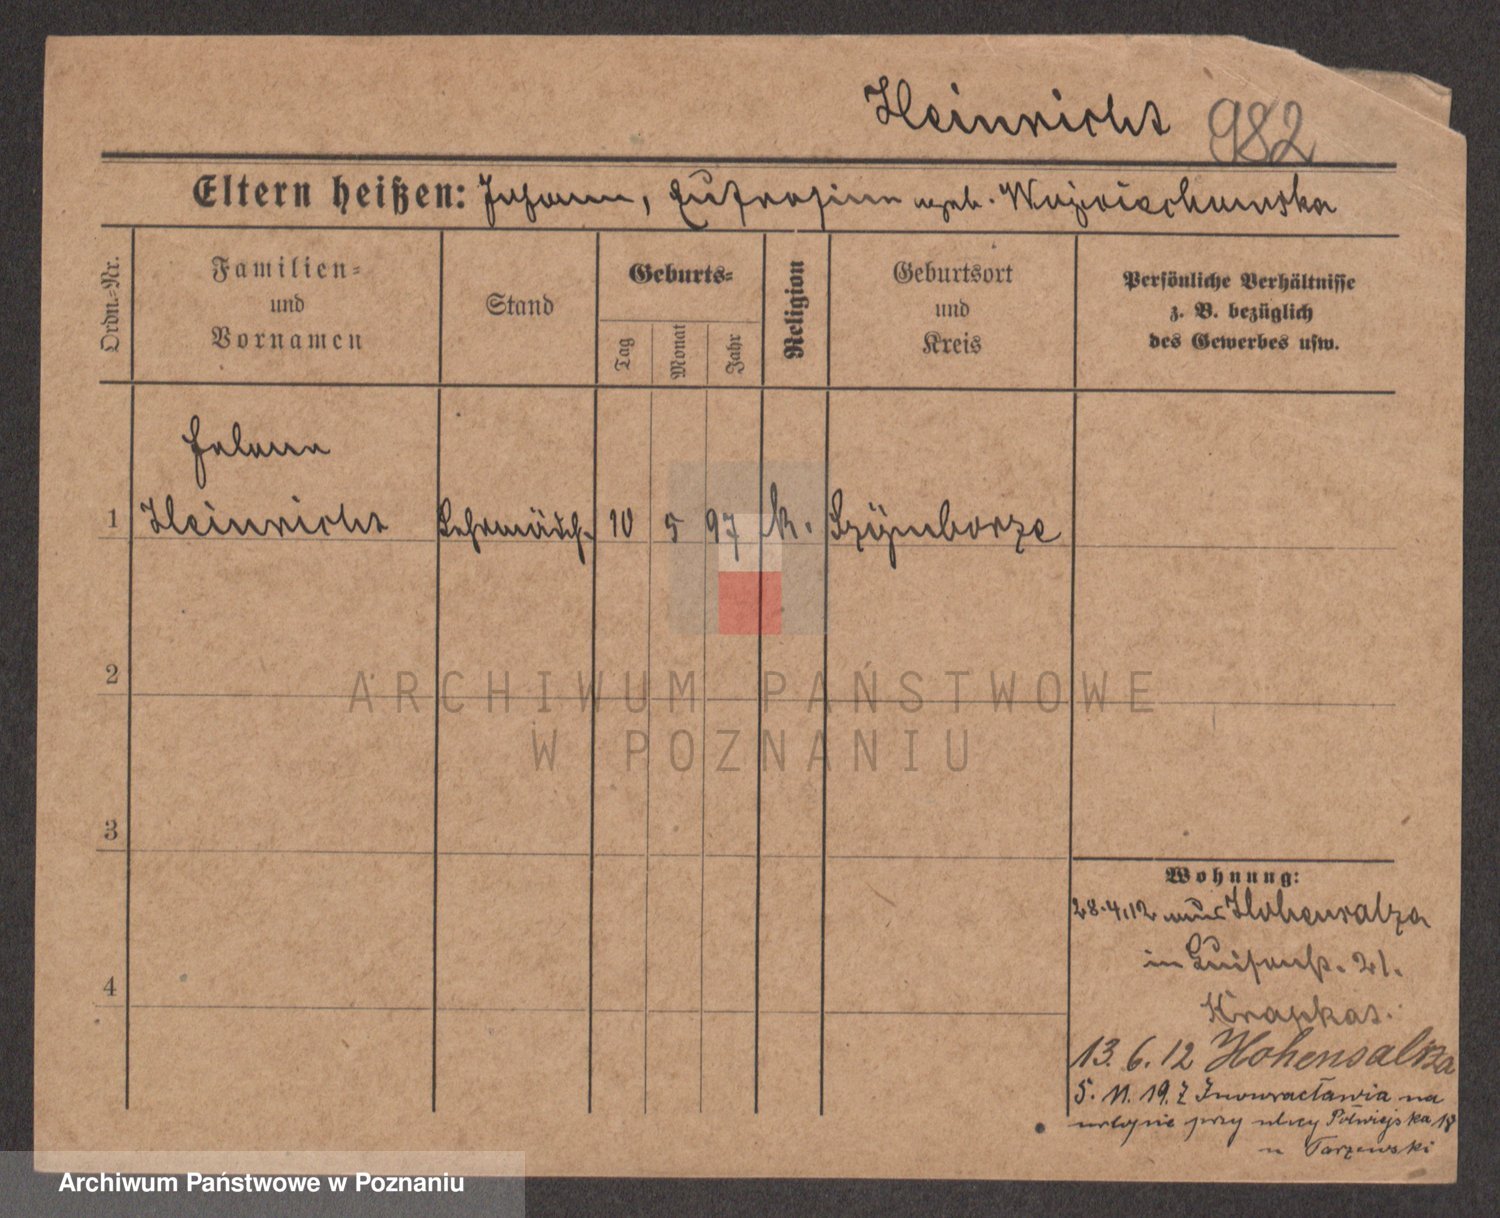 Heinricht 982
Eltern heißen: Johann, Eufrosina geb. Wojciechowska
Ordn.-Nr.
Familien- und Vornamen
Stand
Geburts-
Tag
Monat
Jahr
Religion
Geburtsort und Kreis
Persönliche Verhältnisse
z. B. bezüglich
des Gewerbes usw.
Helena
1 Heinricht Lehrmädch. 10 5 97 k. Szymborze
2
ARCHIWUM PAŃSTWOWE
W POZNANIU
3
Wohnung:
28.4.12 aus Hohensalza
in Luisenstr. 21.
4
13. 6. 12 Hohensalza
5. 11. 19. z Inowracławia na
urlopie przy ulicy Półwiejska 18
u Tarzewski
Archiwum Państwowe w Poznaniu